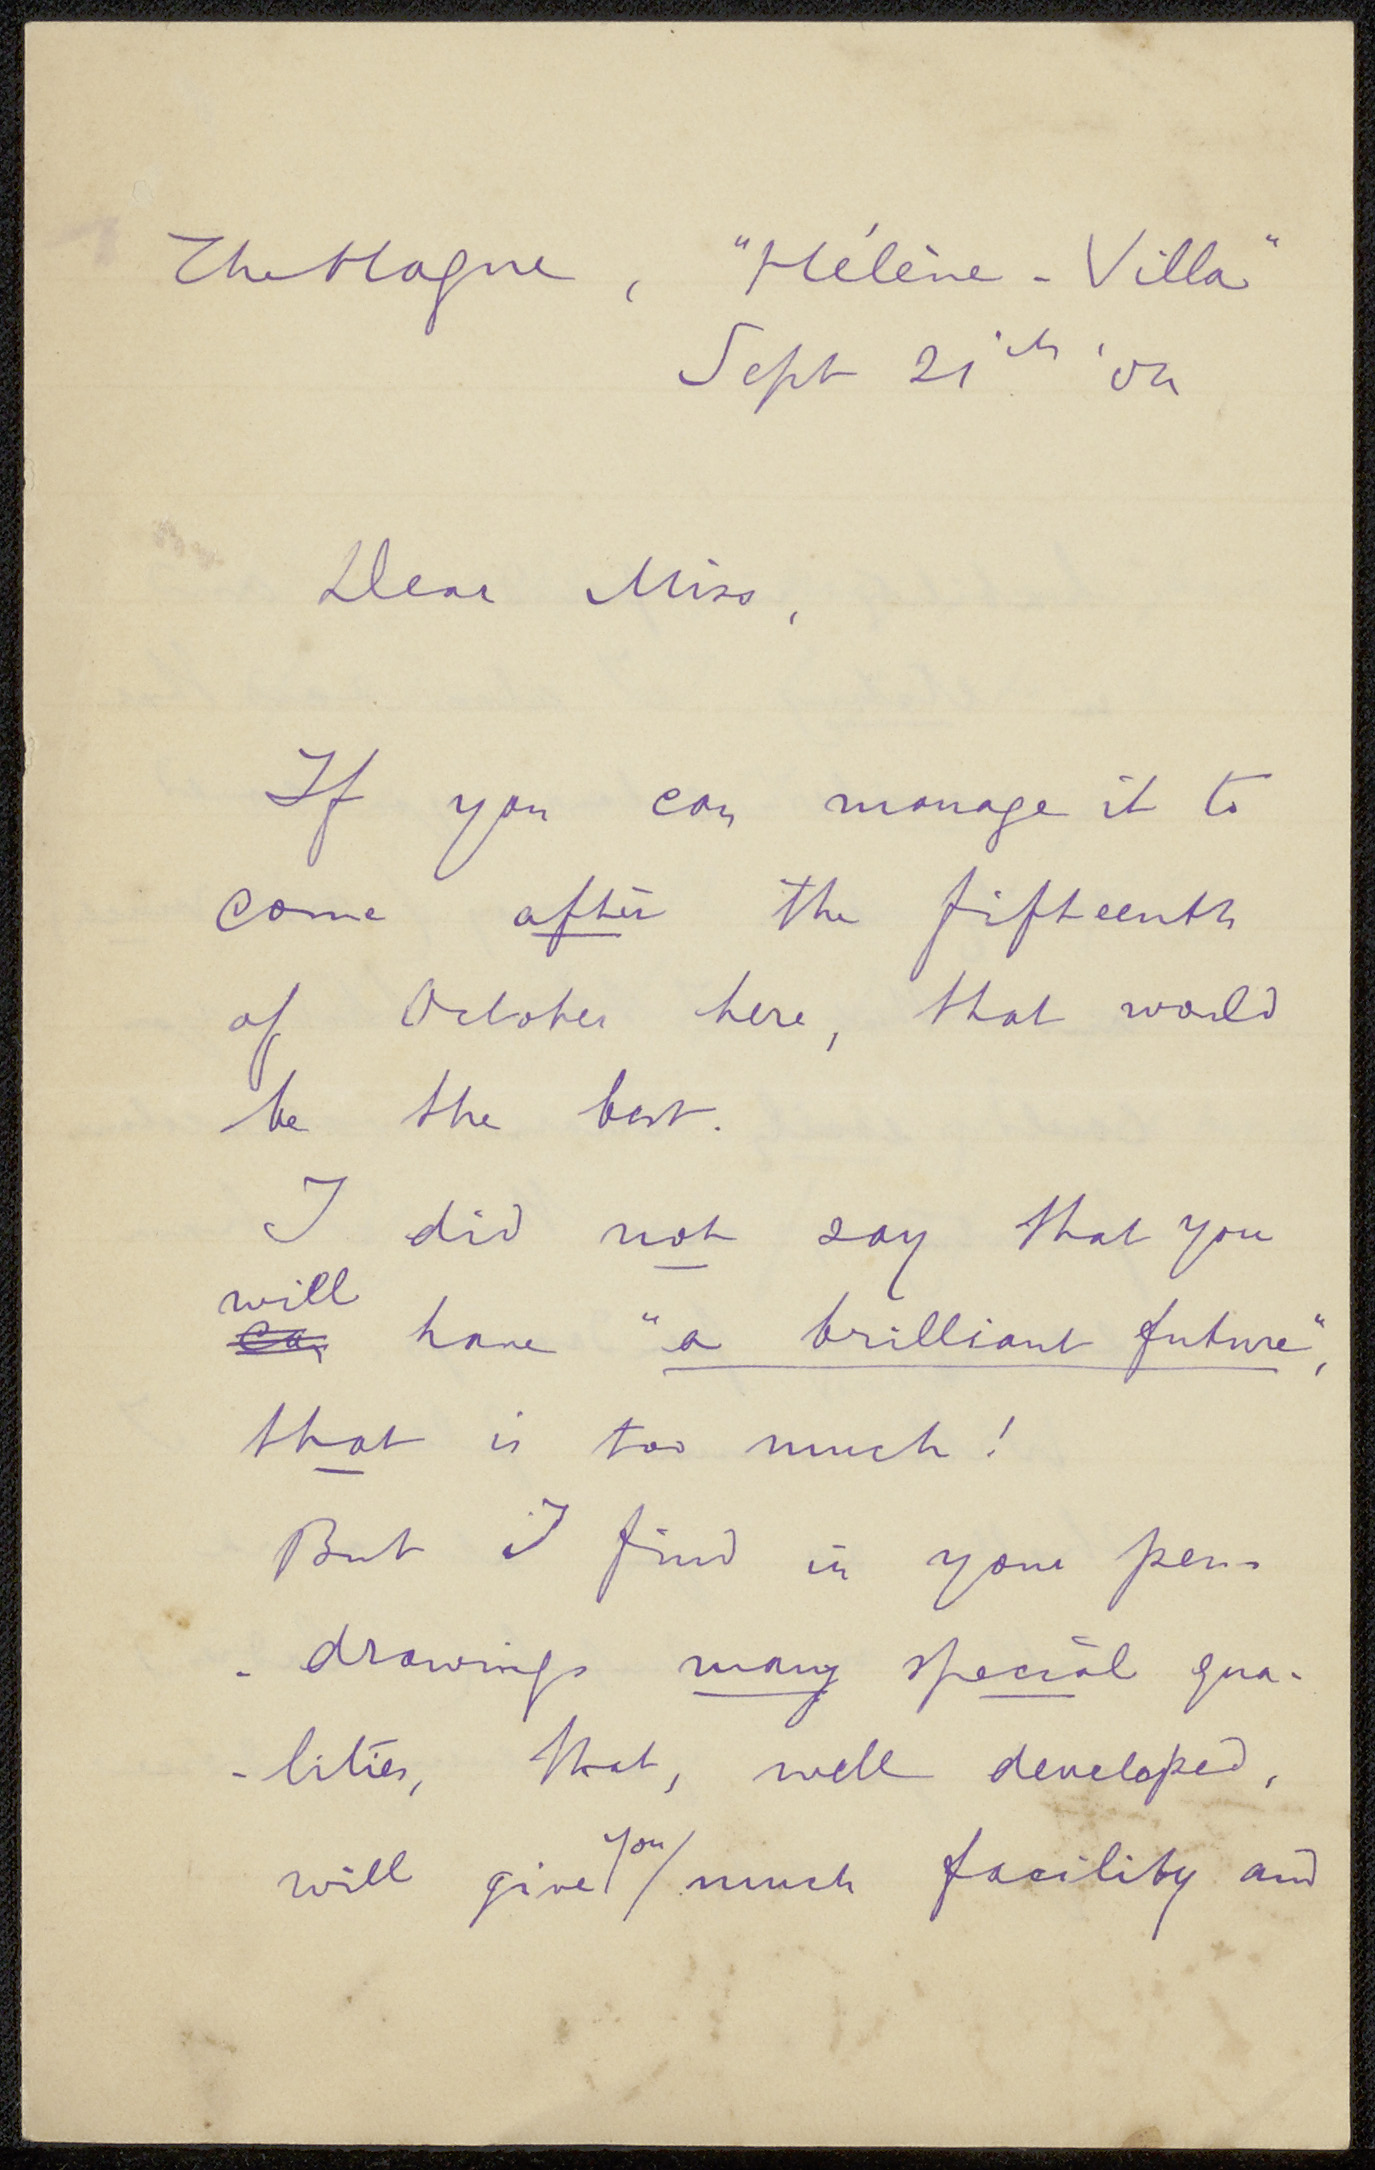 The Hague, "Hélène - Villa"
Sept 21th '04
Dear Miss,
If you can manage it to
come after the fifteenth
of October here, that would
be the best.
I did not say that you
will
can have "a brilliant future",
that is too much!
But I find in your pen-
- drawings many special qua-
- lities, that, well developed,
will give you much facility and